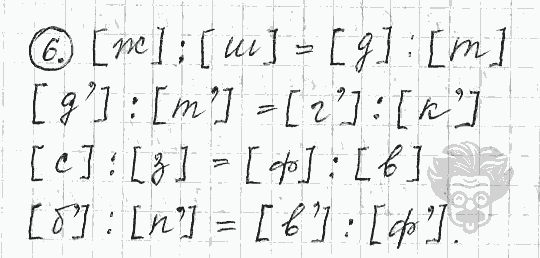 6. [ж] : [ш] = [д] : [т]
[д'] : [т'] = [г'] : [к']
[с] : [з] = [ф] : [в]
[б'] : [п'] = [в'] : [ф'].